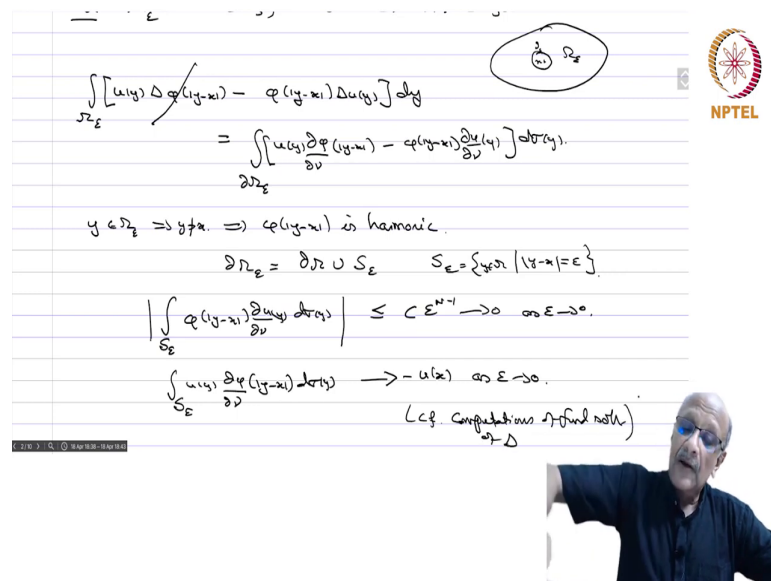 ∫_{Ω_ε} [u(y) Δφ(|y-x|) - φ(|y-x|) Δu(y)] dy
= ∫_{∂Ω_ε} [u(y) ∂φ/∂ν (|y-x|) - φ(|y-x|) ∂u/∂ν (y)] dσ(y).
y ∈ Ω_ε ⇒ y≠x. ⇒ φ(|y-x|) is harmonic.
∂Ω_ε = ∂Ω ∪ S_ε S_ε = {y∈Ω | |y-x|=ε}.
|∫_{S_ε} φ(|y-x|) ∂u/∂ν (y) dσ(y)| ≤ C ε^{N-1} → 0 as ε→0.
∫_{S_ε} u(y) ∂φ/∂ν (|y-x|) dσ(y) → - u(x) as ε→0.
(cf. computations of fund soln
of Δ)
Ω_ε
NPTEL
2/10 18 Apr 18:38 - 18 Apr 18:43